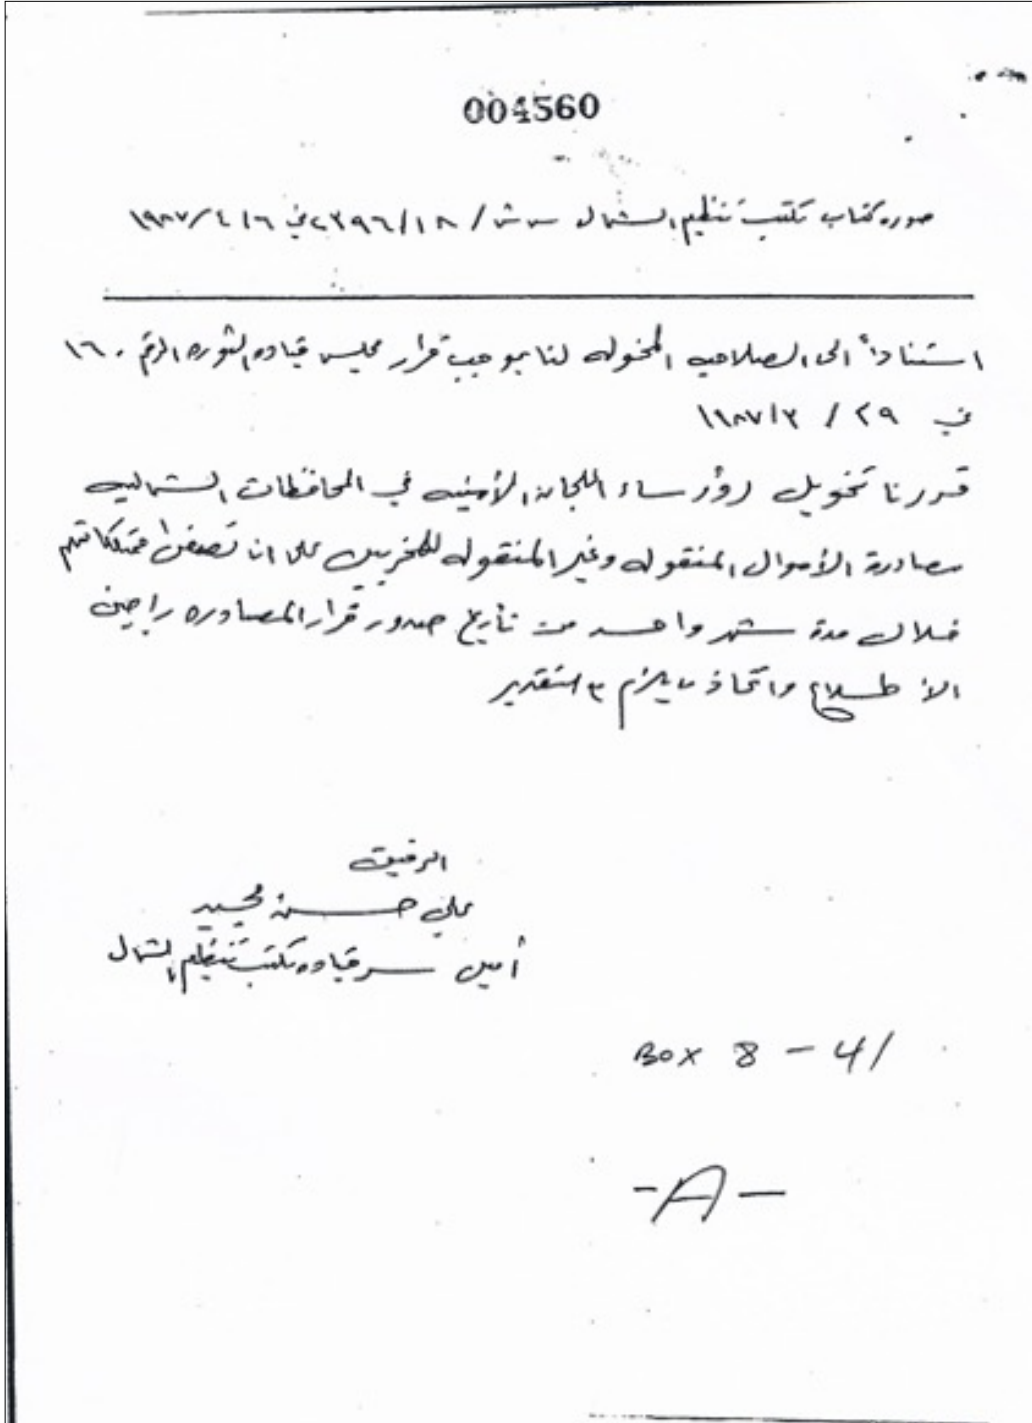 004560
صوره كتاب مكتب تنظيم الشمال س ش / ١٨/٢٣٩٦ في ٦ / ٤ / ١٩٨٧
استناداً الى الصلاحيه المخوله لنا بموجب قرار مجلس قياده الثوره المرقم ١٦٠
في ٢٩ / ٣ / ١٩٨٧
قررنا تخويل رؤساء اللجان الأمنيه في المحافظات الشماليه
مصادرة الأموال المنقوله وغير المنقوله للمخربين على ان تصفى ممتلكاتهم
خلال مدة شهر واحد من تأريخ صدور قرار المصادره راجين
الاطلاع واتخاذ مايلزم مع التقدير
الرفيق
علي حسن مجيد
أمين سر قياده مكتب تنظيم الشمال
BOX 8 - 41
-A-